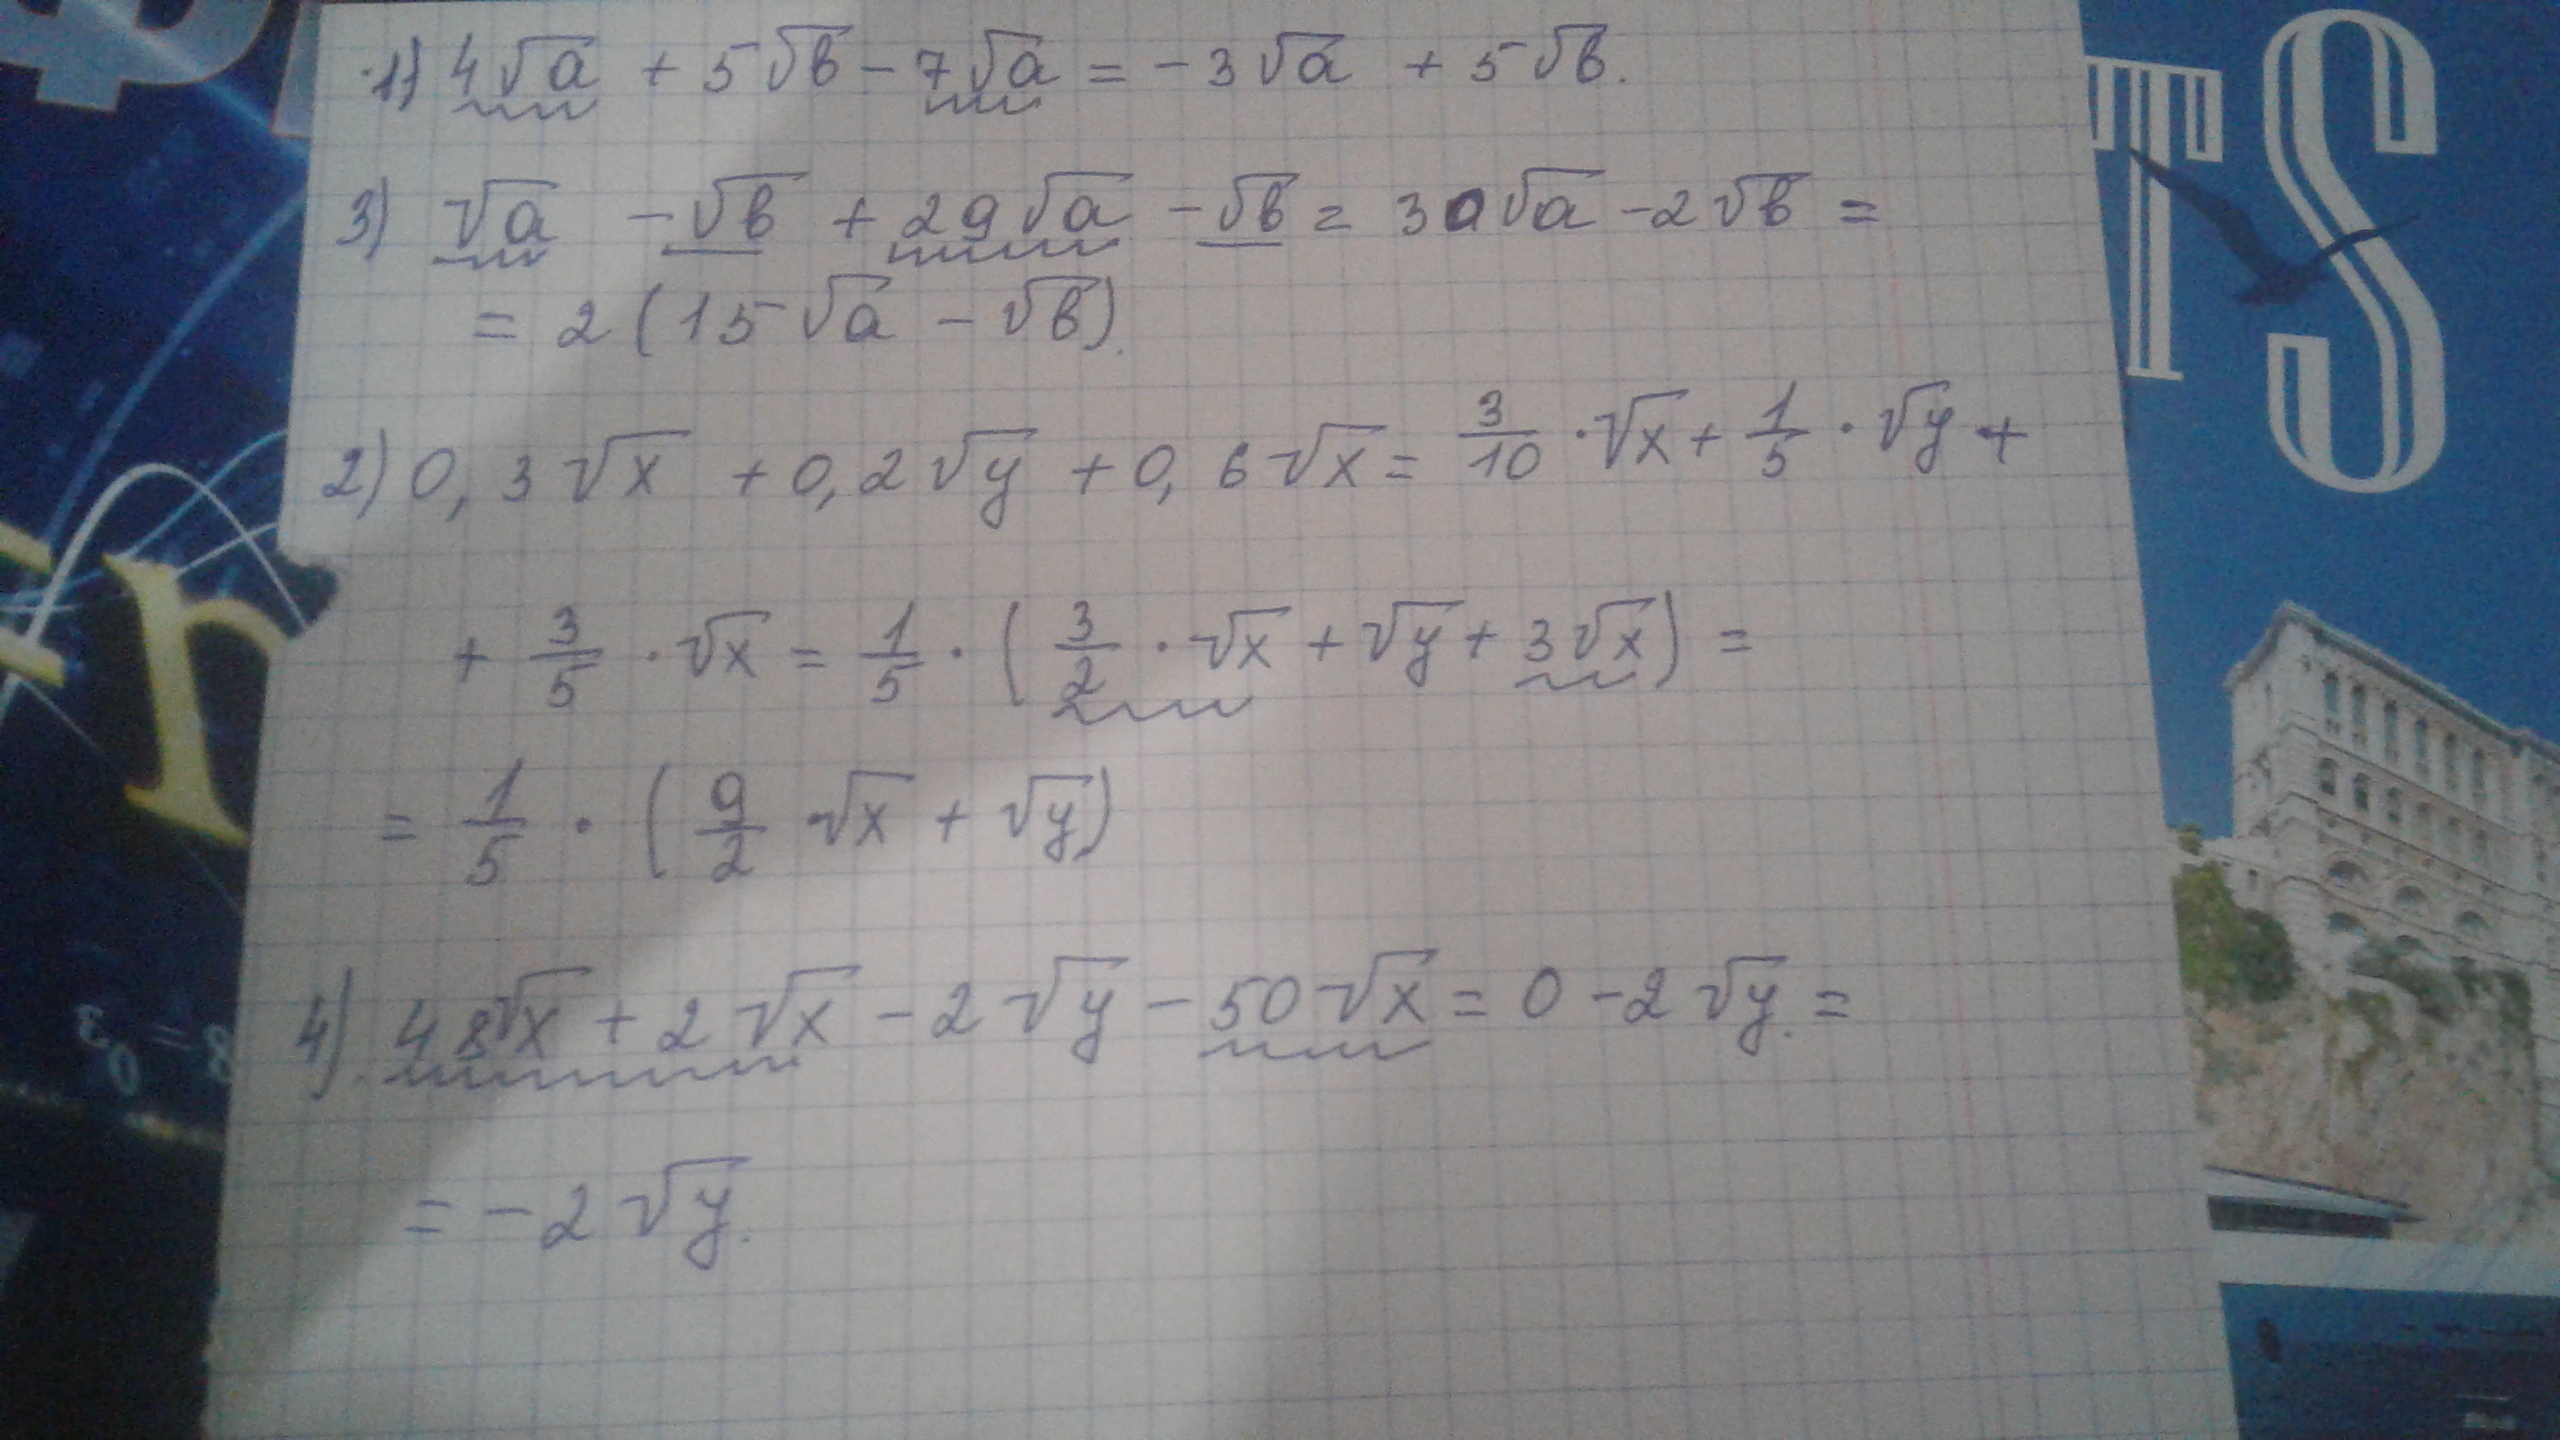 1) 4√a + 5√в - 7√a = -3√a + 5√в.
3) √a - √в + 29√a - √в = 30√a - 2√в =
= 2(15√a - √в).
2) 0,3√x + 0,2√y + 0,6√x = 3/10 · √x + 1/5 · √y +
+ 3/5 · √x = 1/5 · (3/2 · √x + √y + 3√x) =
= 1/5 · (9/2 √x + √y)
4). 48√x + 2√x - 2√y - 50√x = 0 - 2√y. =
= -2√y.
TS
ε₀ = 8